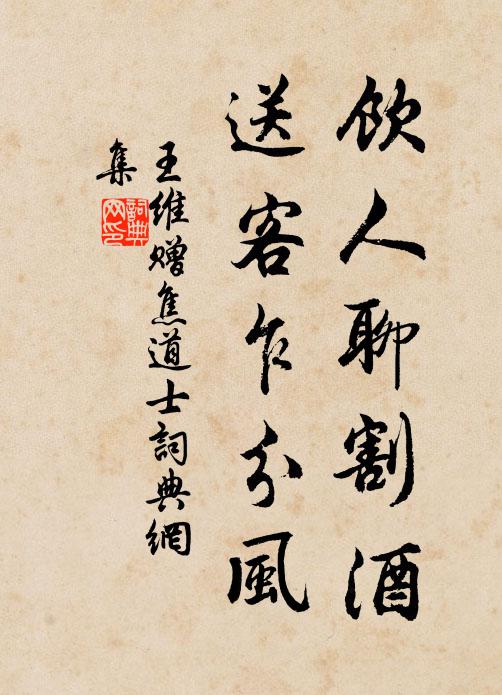 飲人聊割酒
送客乍分風
王維贈焦道士詞典網
集
詞典
网印